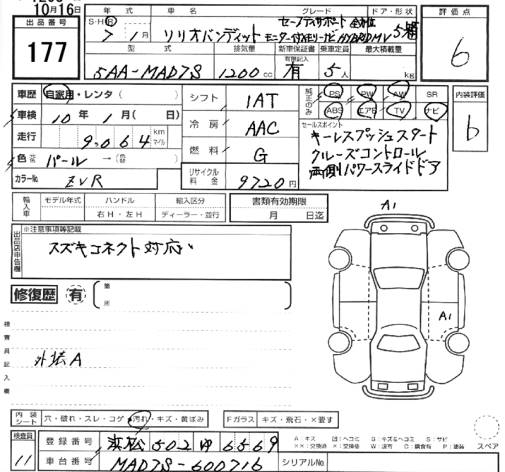 10月16日
出品番号
177
年式 車名 グレード ドア・形状
S・H・R 7年1月 ソリオバンディット セーフティサポート 全方位モニター付メモリーナビ HYBRID MV 5
型式 排気量 新車保証書 乗車定員 最大積載量
有限記入
5AA-MAD7S 1200cc 有 5人 kg
評価点
6
車歴 自家用・レンタ( )
車検 10年1月( 日)
走行 9,064 km マイル
色 元色 パール → 色替( )
カラーNo. ZVR
シフト 1AT
冷房 AAC
燃料 G
リサイクル料金 9720円
純正のみ
PS PW AW SR
ABS エアB TV ナビ
内装評価
b
セールスポイント
キーレスプッシュスタート
クルーズコントロール
両側パワースライドドア
輸入車
モデル年式 ハンドル 輸入区分
年 右H・左H ディーラー・並行
書類有効期限
月 日迄
出品店申告欄
※注意事項等記載
スズキコネクト対応
修復歴 有
箇所
検査員記入欄
外装A
A1
A1
内装シート 穴・破れ・スレ・コゲ 汚れ・キズ・黄ばみ
Fガラス キズ・飛石・×要す
検査員
11
登録番号 浜松502ゆ6569
車台番号 MAD7S-600716
シリアルNo.
A キズ U ヘコミ G キズ&ヘコミ S サビ
××:交換済 ×:交換 W 波有 C 腐食有 P:塗装 スペア